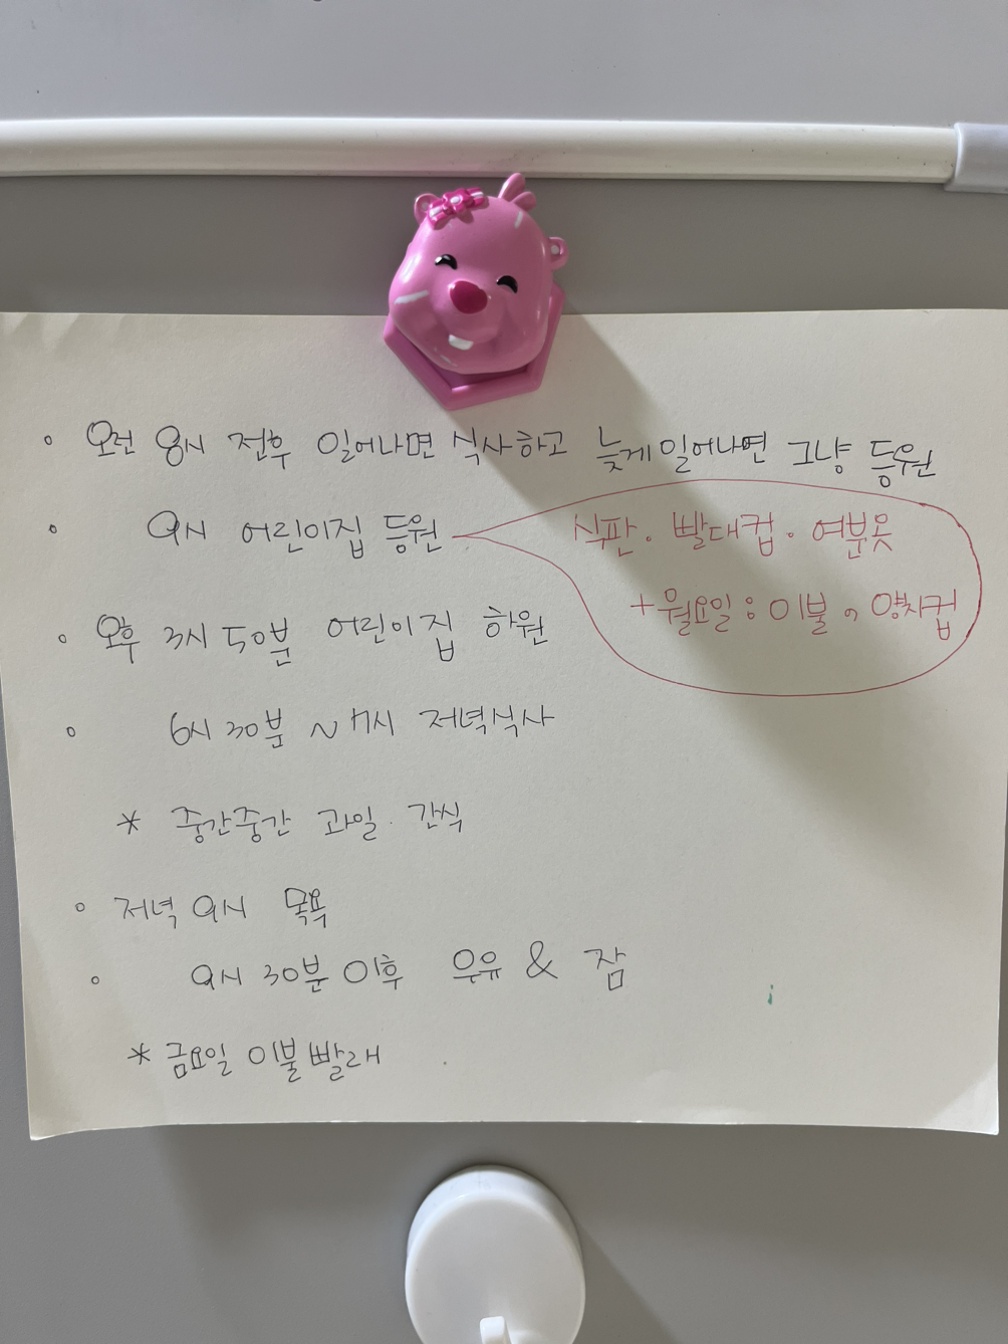 ◦ 오전 8시 전후 일어나면 식사하고 늦게일어나면 그냥 등원
◦ 9시 어린이집 등원
식판 . 빨대컵 . 여분옷
+ 월요일 : 이불 , 양치컵
◦ 오후 3시 50분 어린이집 하원
◦ 6시 30분 ~ 7시 저녁식사
* 중간중간 과일 . 간식
◦ 저녁 9시 목욕
◦ 9시 30분 이후 우유 & 잠
* 금요일 이불빨래